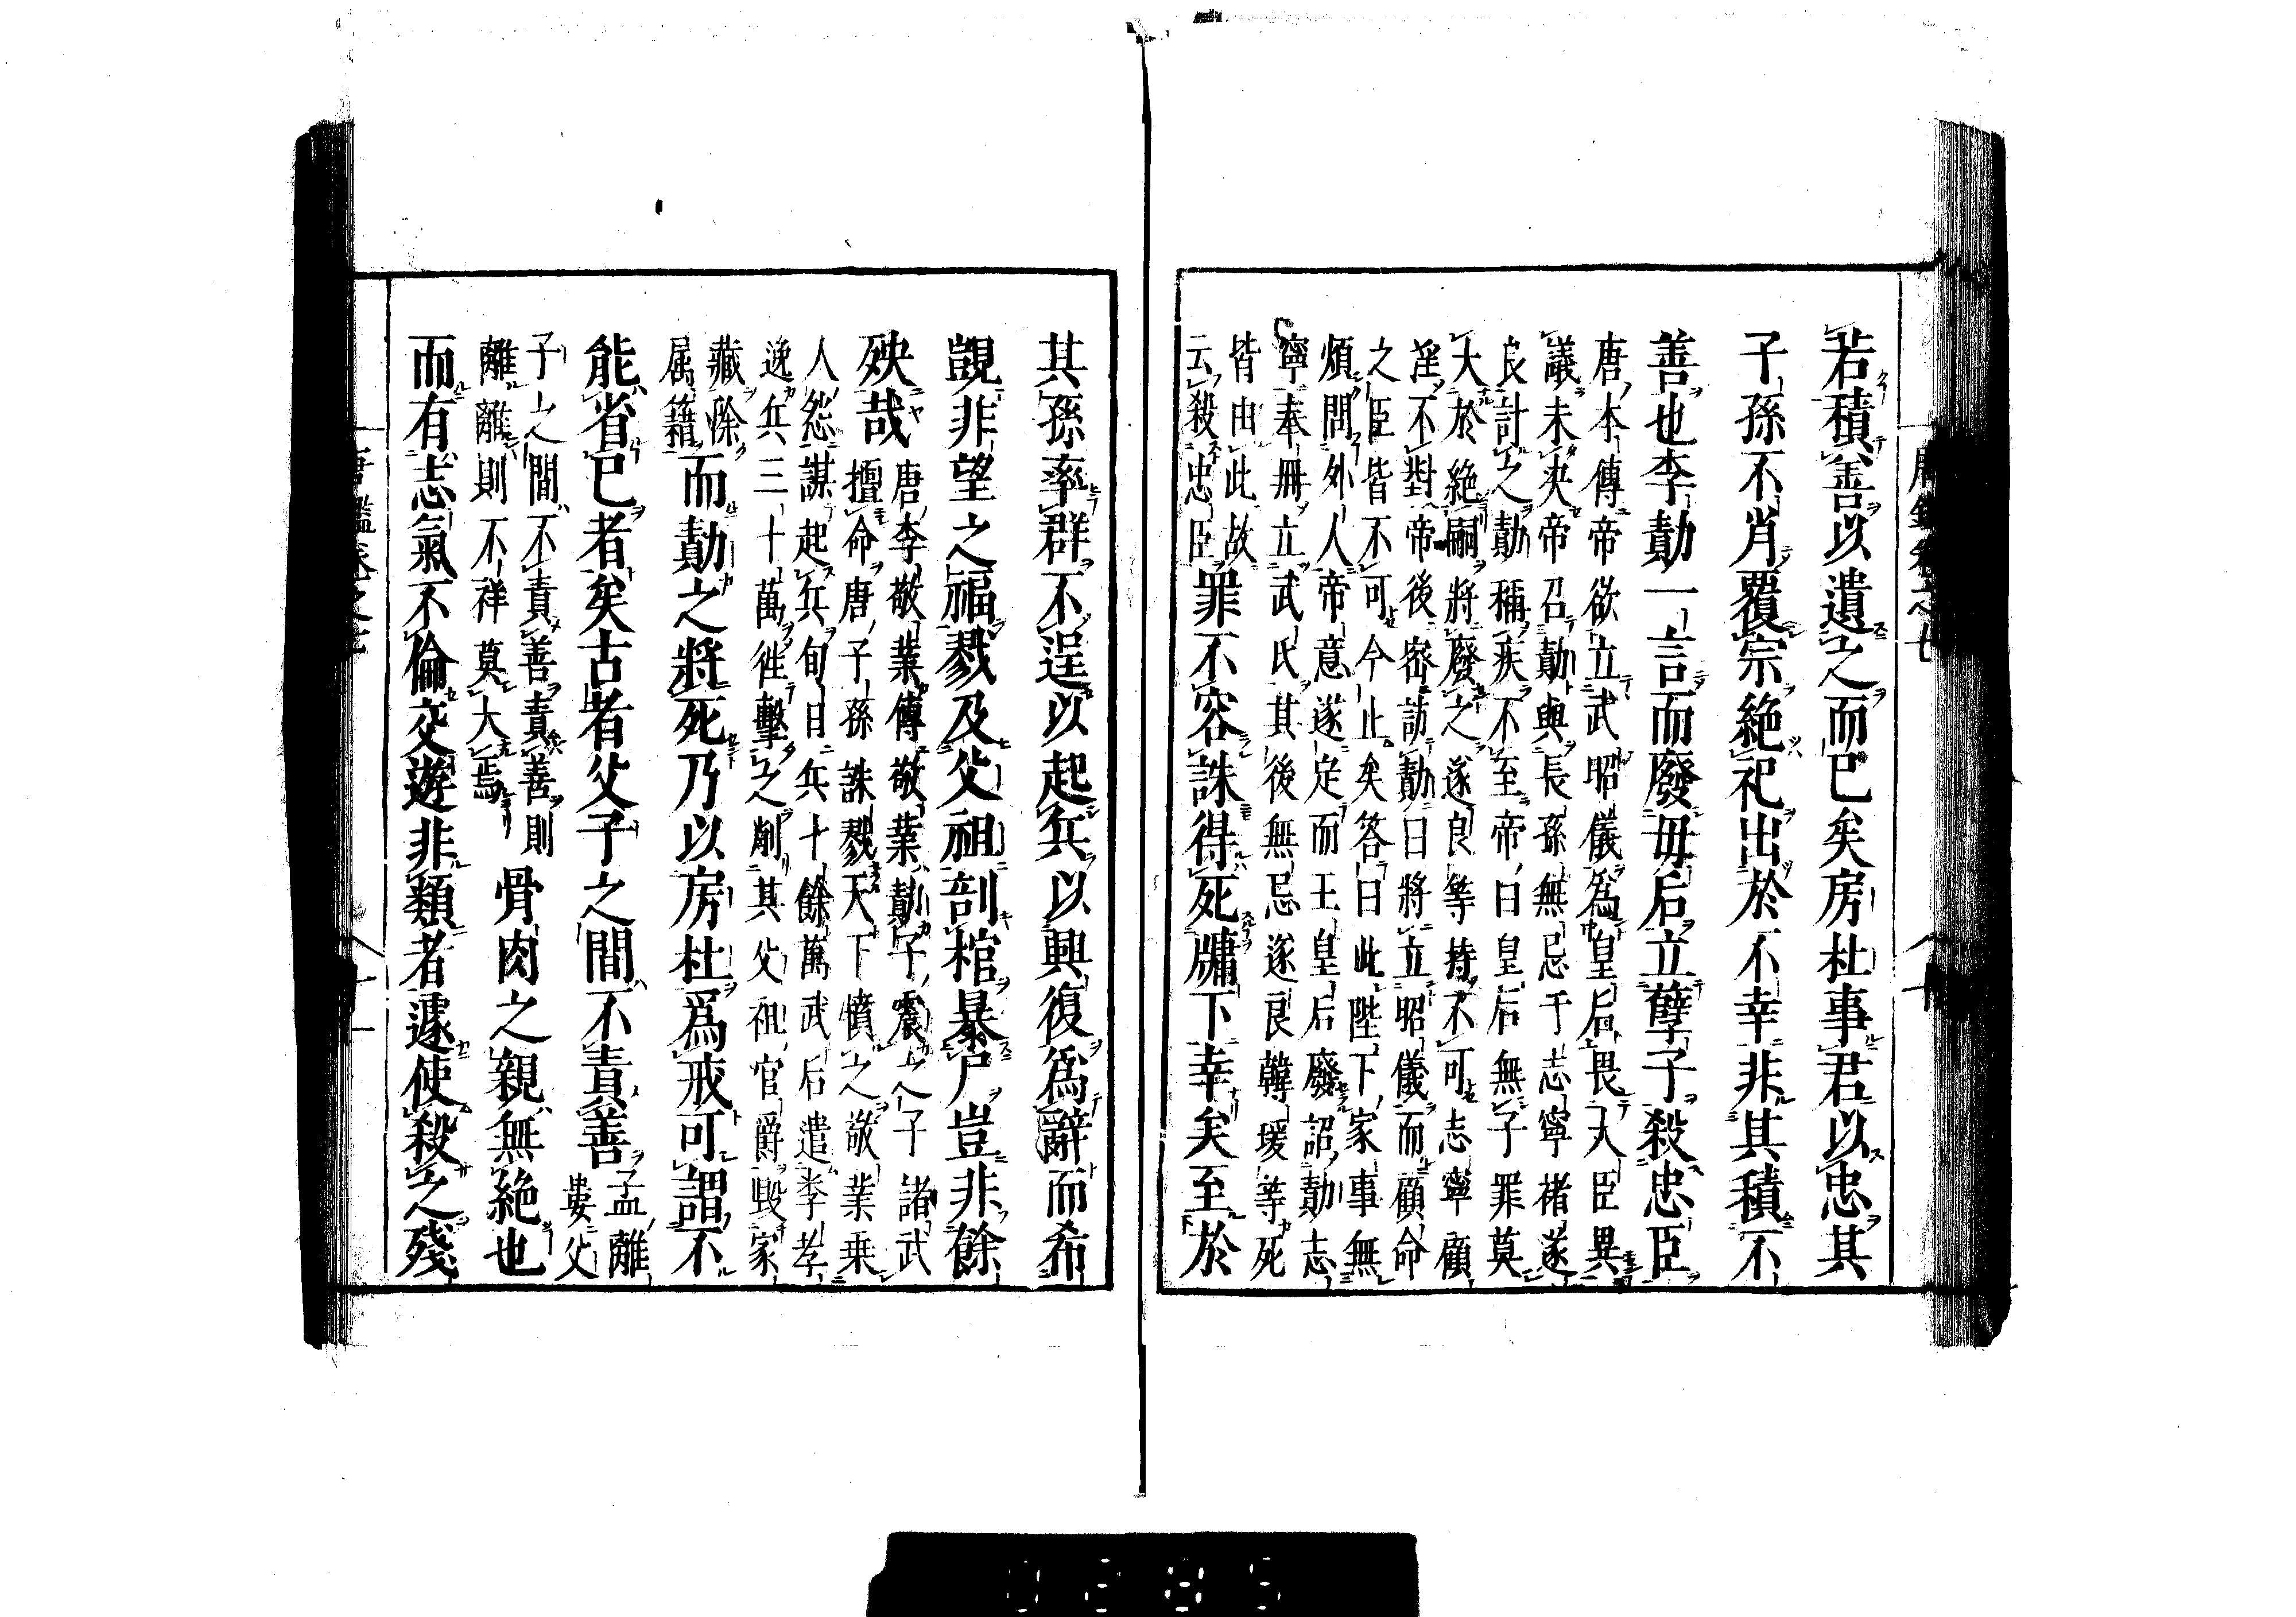 若積善以遺之而已矣房杜事君以忠其
子孫不肖覆宗絶祀出於不幸非其積不
善也李勣一言而廢毋后立孽子殺忠臣
唐本傳帝欲立武昭儀爲皇后畏大臣異
議未决帝召勣與長孫無忌于志寧褚遂
良計之勣稱疾不至帝曰皇后無子罪莫
大於絶嗣將廢之遂良等持不可志寧顧
望不對帝後密訪勣曰將立昭儀而顧命
之臣皆不可今止矣答曰此陛下家事無
煩問外人帝意遂定而王皇后廢詔勣志
寧奉冊立武氏其後無忌遂良韓瑗等死
皆由此故
云殺忠臣罪不容誅得死牖下幸矣至於
其孫率群不逞以起兵以興復爲辭而希
覬非望之福戮及父祖剖棺暴尸豈非餘
殃哉
唐李敬業傳敬業勣子震之子諸武
擅命唐子孫誅戮天下憤之敬業乗
人怨謀起兵旬日兵十餘萬武后遣李孝
逸兵三十萬徃擊之削其父祖官爵毀冢
藏除
属籍而勣之將死乃以房杜爲戒可謂不
能省已者矣古者父子之間不責善
孟離
婁父
子之間不責善責善則
離離則不祥莫大焉
骨肉之親無絶也
而有志氣不倫交遊非類者遽使殺之殘
唐鑑卷之七
十一